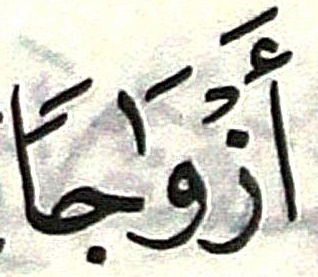 أَزْوَٰجًا